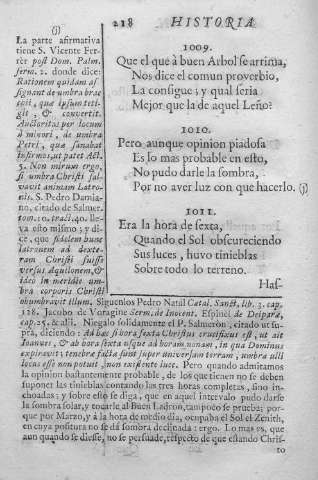 218 HISTORIA
1009.
Que el que à buen Arbol se arrima,
Nos dice el comun proverbio,
La consigue; y qual seria
Mejor que la de aquel Leño?
1010.
Pero aunque opinion piadosa
Es lo mas probable en esto,
No pudo darle la sombra,
Por no aver luz con que hacerlo. (j)
1011.
Era la hora de sexta,
Quando el Sol obscureciendo
Sus luces, huvo tinieblas
Sobre todo lo terreno.
Has-
(j)
La parte afirmativa
tiene S. Vicente Fer-
rer post Dom. Palm.
serm. 2. donde dice:
Rationem quidam as-
signant de umbra brac-
quæ ipsum teti-
git, & convertit.
Auctoritas per locum
à minori, de umbra
Petri, quæ sanabat
infirmos, ut patet Act.
5. Non mirum ergo,
si umbra Christi sal-
vavit animam Latro-
nis. S. Pedro Damia-
no, citado de Salmer-
tom. 10. tract. 40. lle-
va esto mismo; y di-
ce, que fidelem hunc
latronem ad dexte-
ram Christi fuisse
versus Aquilonem, &
ideo in meridie um-
bra corporis Christi
obumbravit illum. Siguenlos Pedro Natal Catal. Sanct. lib. 3. cap.
128. Jacobo de Voragine Serm. de Innocent. Espinel de Deipara,
cap. 25. & alii. Niegalo solidamente el P. Salmeròn, citado ut su-
prà, diciendo: Ad hæc si hora sexta Christus crucifixus est, ut ait
Joannes, & ab hora sexta usque ad horam nonam, in qua Dominus
expiravit; tenebræ factæ sunt super universam terram, umbra ulli
locus esse non potuit, non existente luce. Pero quando admitamos
la opinion bastantemente probable, de los que tienen no se deben
suponer las tinieblas contando las tres horas completas, sino in-
choadas; y sobre esto se diga, que en aquel intervalo pudo darse
la sombra solar, y tocarle al Buen Ladron, tampoco se prueba; por-
que por Marzo, y à la hora de medio dia, ocupaba el Sol el Zenith,
en cuya positura no se dà sombra declinada: ergo. Lo mas es, que
aun quando se diesse, no se persuade, respecto de que estando Chris-
to